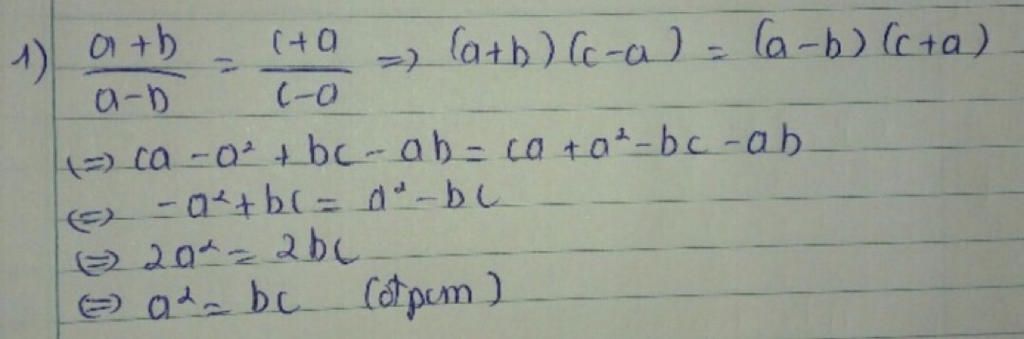 1) (a+b)/(a-b) = (c+a)/(c-a) => (a+b)(c-a) = (a-b)(c+a)
<=> ca - a² + bc - ab = ca + a² - bc - ab
<=> -a² + bc = a² - bc
<=> 2a² = 2bc
<=> a² = bc (đpcm)